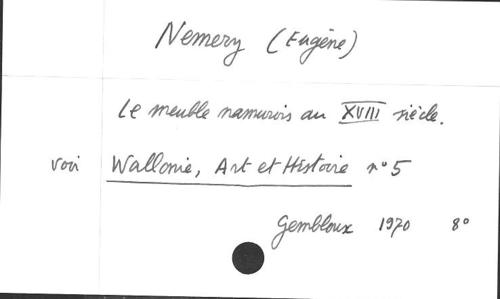 Nemery (Eugène)
Le meuble namurois au XVIII siècle.
voir Wallonie, Art et Histoire n° 5
Gembloux 1970 8°